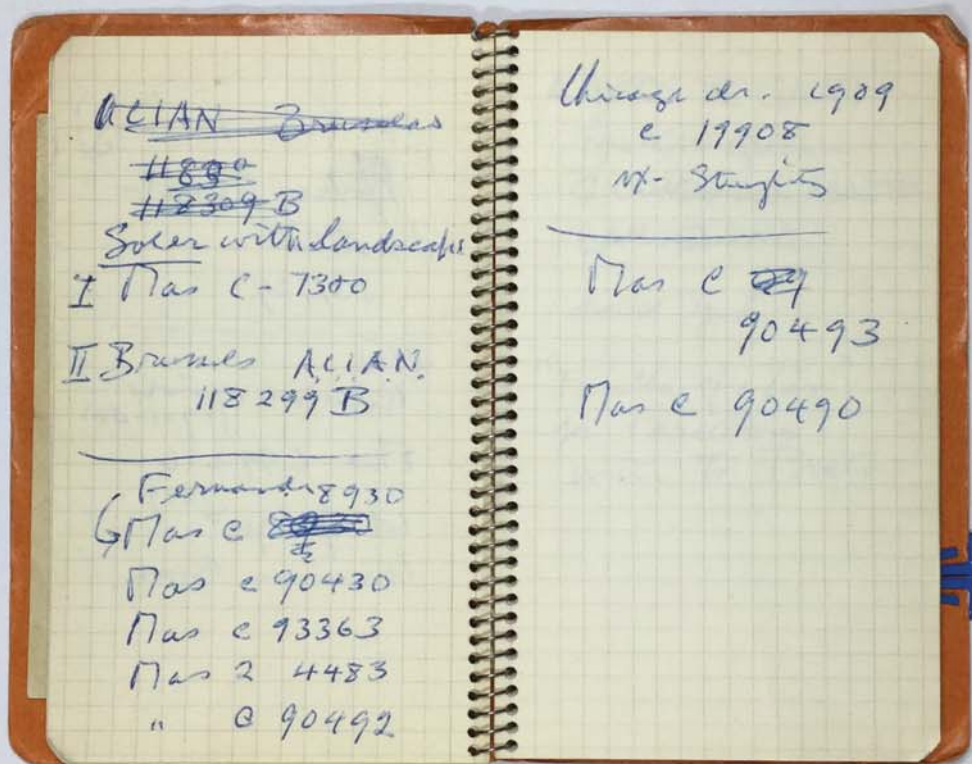 ACIAN Brussels
118309 B
Soler with landscape
I Mas C - 7300
II Brussels A.C.I.A.N.
118299 B
8930
Mas C
Mas C 90430
Mas C 93363
Mas 2 4483
" C 90492
Chicago dr. 1909
C 19908
Mas C
90493
Mas C 90490